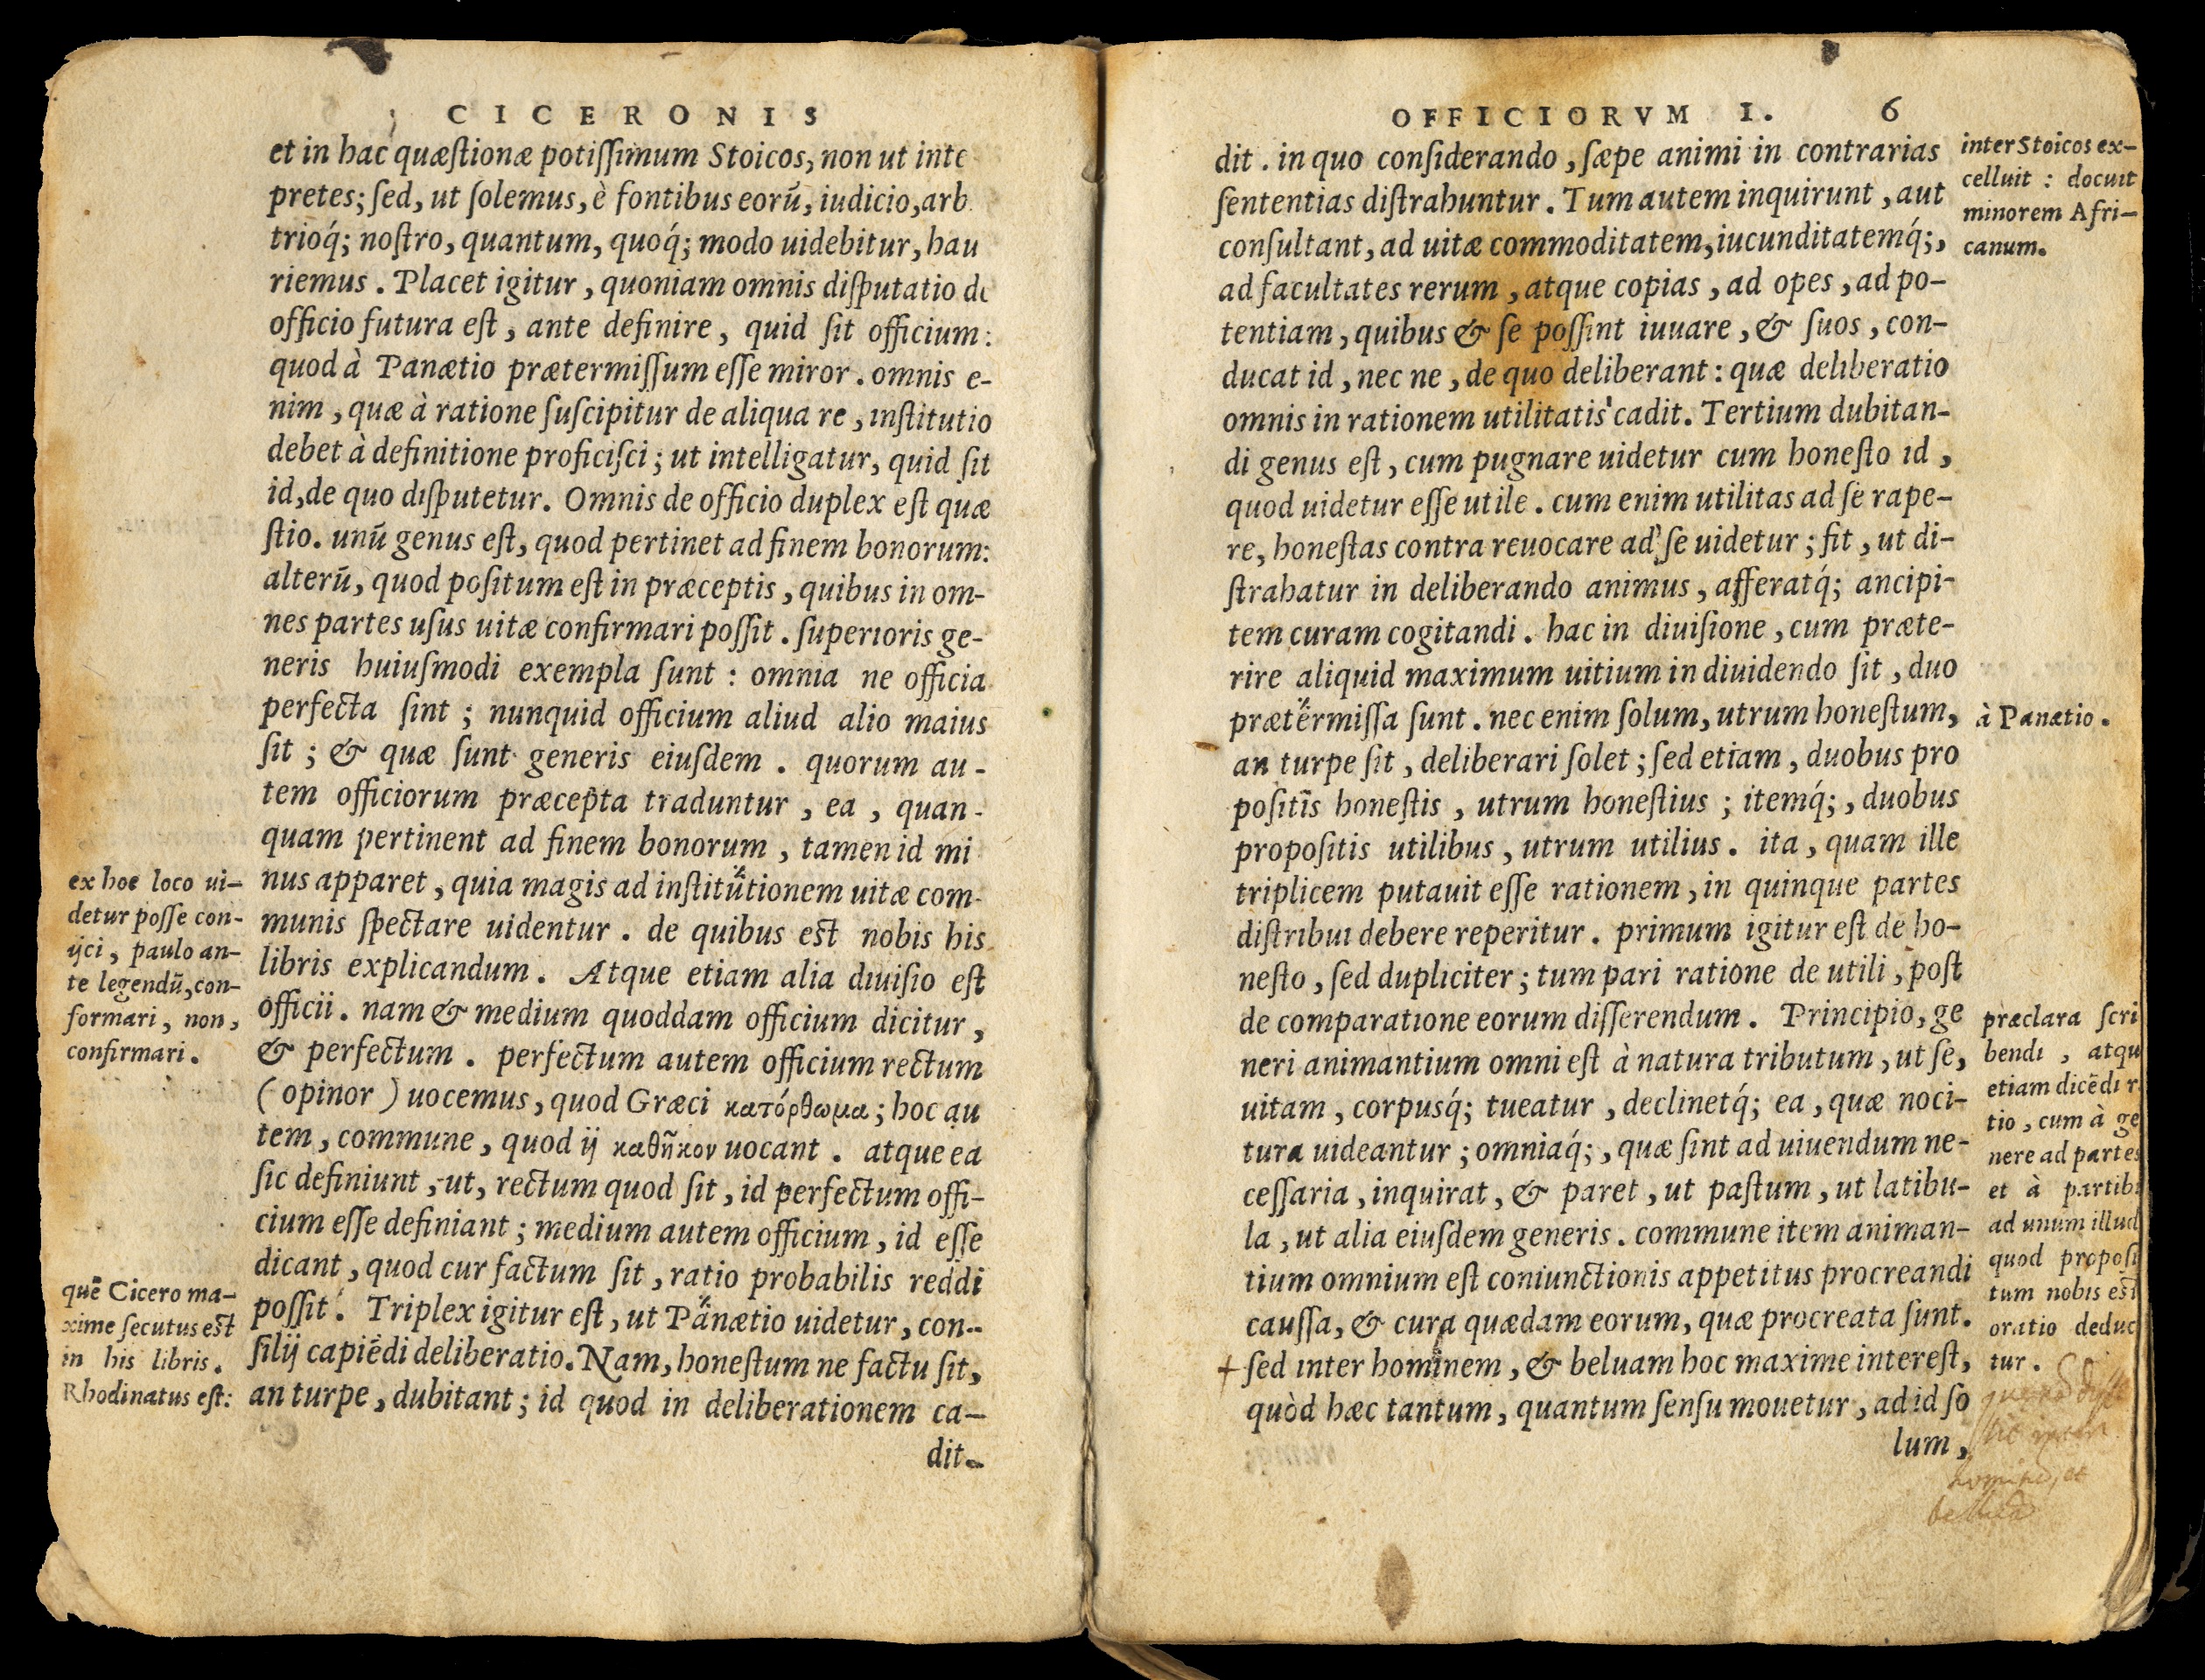 CICERONIS
et in hac quæſtionæ potiſſimum Stoicos, non ut inte
pretes; ſed, ut ſolemus, è fontibus eorū, iudicio, arb
trioq́; noſtro, quantum, quoq́; modo uidebitur, hau
riemus. Placet igitur, quoniam omnis diſputatio de
officio futura eſt, ante definire, quid ſit officium:
quod à Panætio prætermiſſum eſſe miror. omnis e-
nim, quæ à ratione ſuſcipitur de aliqua re, inſtitutio
debet à definitione proficiſci; ut intelligatur, quid ſit
id, de quo diſputetur. Omnis de officio duplex eſt quæ
ſtio. unū genus eſt, quod pertinet ad finem bonorum:
alterū, quod poſitum eſt in præceptis, quibus in om-
nes partes uſus uitæ confirmari poſſit. ſuperioris ge-
neris huiuſmodi exempla ſunt: omnia ne officia
perfecta ſint; nunquid officium aliud alio maius
ſit; & quæ ſunt generis eiuſdem. quorum au-
tem officiorum præcepta traduntur, ea, quan-
quam pertinent ad finem bonorum, tamen id mi
nus apparet, quia magis ad inſtitutionem uitæ com-
munis ſpectare uidentur. de quibus eſt nobis his
libris explicandum. Atque etiam alia diuiſio eſt
officii. nam & medium quoddam officium dicitur,
& perfectum. perfectum autem officium rectum
(opinor) uocemus, quod Græci κατόρθωμα; hoc au
tem, commune, quod ij καθῆκον uocant. atque ea
ſic definiunt, ut, rectum quod ſit, id perfectum offi-
cium eſſe definiant; medium autem officium, id eſſe
dicant, quod cur factum ſit, ratio probabilis reddi
poſſit. Triplex igitur eſt, ut Panætio uidetur, con-
ſilij capiēdi deliberatio. Nam, honeſtum ne factu ſit,
an turpe, dubitant; id quod in deliberationem ca-
dit.
ex hoc loco ui-
detur poſſe con-
ijci, paulo an-
te legendū, con-
formari, non,
confirmari.
quē Cicero ma-
xime ſecutus eſt
in his libris.
Rhodi natus eſt:
OFFICIORVM I. 6
dit. in quo conſiderando, ſæpe animi in contrarias
ſententias diſtrahuntur. Tum autem inquirunt, aut
conſultant, ad uitæ commoditatem, iucunditatemq́;,
ad facultates rerum, atque copias, ad opes, ad po-
tentiam, quibus & ſe poſſint iuuare, & ſuos, con-
ducat id, nec ne, de quo deliberant: quæ deliberatio
omnis in rationem utilitatis cadit. Tertium dubitan-
di genus eſt, cum pugnare uidetur cum honeſto id,
quod uidetur eſſe utile. cum enim utilitas ad ſe rape-
re, honeſtas contra reuocare ad ſe uidetur; fit, ut di-
ſtrahatur in deliberando animus, afferatq́; ancipi-
tem curam cogitandi. hac in diuiſione, cum præte-
rire aliquid maximum uitium in diuidendo ſit, duo
prætermiſſa ſunt. nec enim ſolum, utrum honeſtum,
an turpe ſit, deliberari ſolet; ſed etiam, duobus pro
poſitis honeſtis, utrum honeſtius; itemq́;, duobus
propoſitis utilibus, utrum utilius. ita, quam ille
triplicem putauit eſſe rationem, in quinque partes
diſtribui debere reperitur. primum igitur eſt de ho-
neſto, ſed dupliciter; tum pari ratione de utili, poſt
de comparatione eorum diſſerendum. Principio, ge
neri animantium omni eſt à natura tributum, ut ſe,
uitam, corpusq́; tueatur, declinetq́; ea, quæ noci-
tura uideantur; omniaq́;, quæ ſint ad uiuendum ne-
ceſſaria, inquirat, & paret, ut paſtum, ut latibu-
la, ut alia eiuſdem generis. commune item animan-
tium omnium eſt coniunctionis appetitus procreandi
cauſſa, & cura quædam eorum, quæ procreata ſunt.
+ ſed inter hominem, & beluam hoc maxime intereſt,
quòd hæc tantum, quantum ſenſu mouetur, ad id ſo
lum,
inter Stoicos ex-
celluit: docuit
minorem Afri-
canum.
à Panætio.
præclara ſcri
bendi, atqu
etiam dicēdi r
tio, cum à ge
nere ad partes
et à partib
ad unum illud
quod propoſi
tum nobis eſt
oratio deduc
tur.